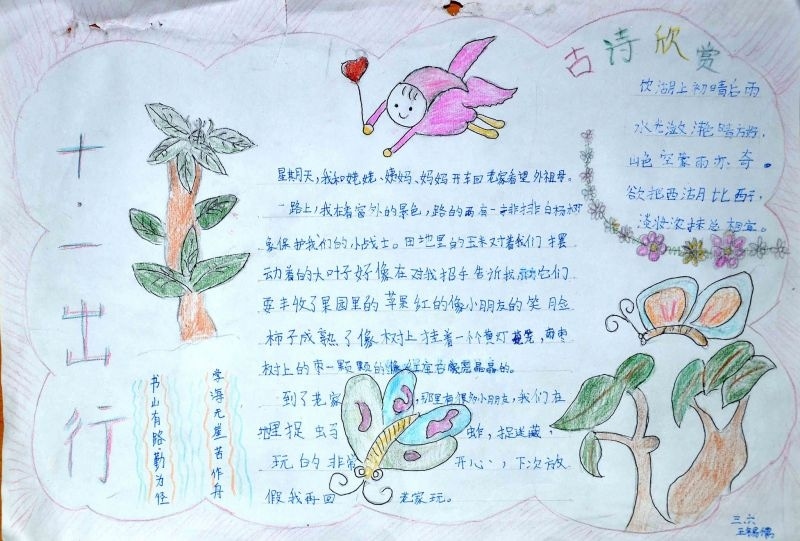 十·一出行
古诗欣赏
饮湖上初晴后雨
水光潋滟晴方好,
山色空蒙雨亦奇。
欲把西湖比西子
淡妆浓抹总相宜。
星期天,我和姥姥、姨妈、妈妈开车回老家看望外祖母。
一路上,我看窗外的景色,路的两有一排排白杨树
象保护我们的小战士。田地里的玉米对着我们摆
动着的大叶子好像在对我招手告诉我它们
要丰收了果园里的苹果红的像小朋友的笑脸
柿子成熟了像树上挂着一个个黄灯笼,
树上的枣一颗颗的像晶晶的。
到了老家,那里有很多小朋友,我们在
地里捉蚂蚱,捉迷藏,
玩的非常开心,下次放
假我再回老家玩。
学海无崖苦作舟
书山有路勤为径
三.六